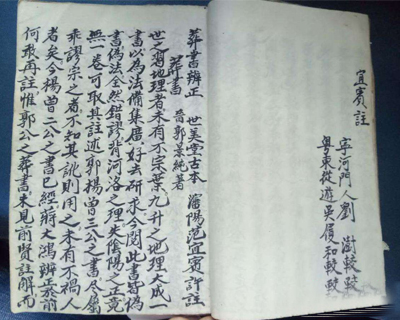 宜賓註
寧河門人劉 澍較較
粵東從遊吳履和較較
葬書辨正 世美堂古本 瀋陽范宜賓評註
葬書 晉郭景純著
世之習地理者未有不宗葉九升之地理大成一
書以為法備集廣好去研求今閱此書皆偽
書偽法全然錯謬背河洛之理失陰陽之正竟
無一卷可取其註述郭楊曾三公之書尽屬
乖謬宗之者不知其訛則用之未有不禍人
者矣今楊曾二公之書已經蔣大鴻辨正於前
何敢再註惟郭公之葬書未見前賢註解而